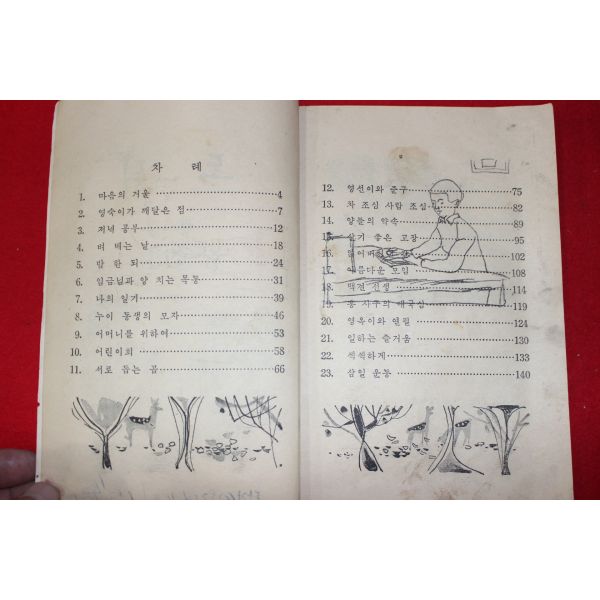 차 례
1. 마음의 거울 4
2. 영숙이가 깨달은 점 7
3. 저녁 공부 12
4. 벼 베는 날 18
5. 밥 한 되 24
6. 임금님과 양 치는 목동 31
7. 나의 일기 39
8. 누이 동생의 모자 46
9. 어머니를 위하여 53
10. 어린이회 58
11. 서로 돕는 곰 66
12. 영선이와 준구 75
13. 차 조심 사람 조심 82
14. 양들의 약속 89
15. 살기 좋은 고장 95
16. 102
17. 아름다운 모임 108
18. 백결 선생 114
19. 홍 사구의 애국심 119
20. 영옥이와 연필 124
21. 일하는 즐거움 130
22. 씩씩하게 133
23. 삼일 운동 140